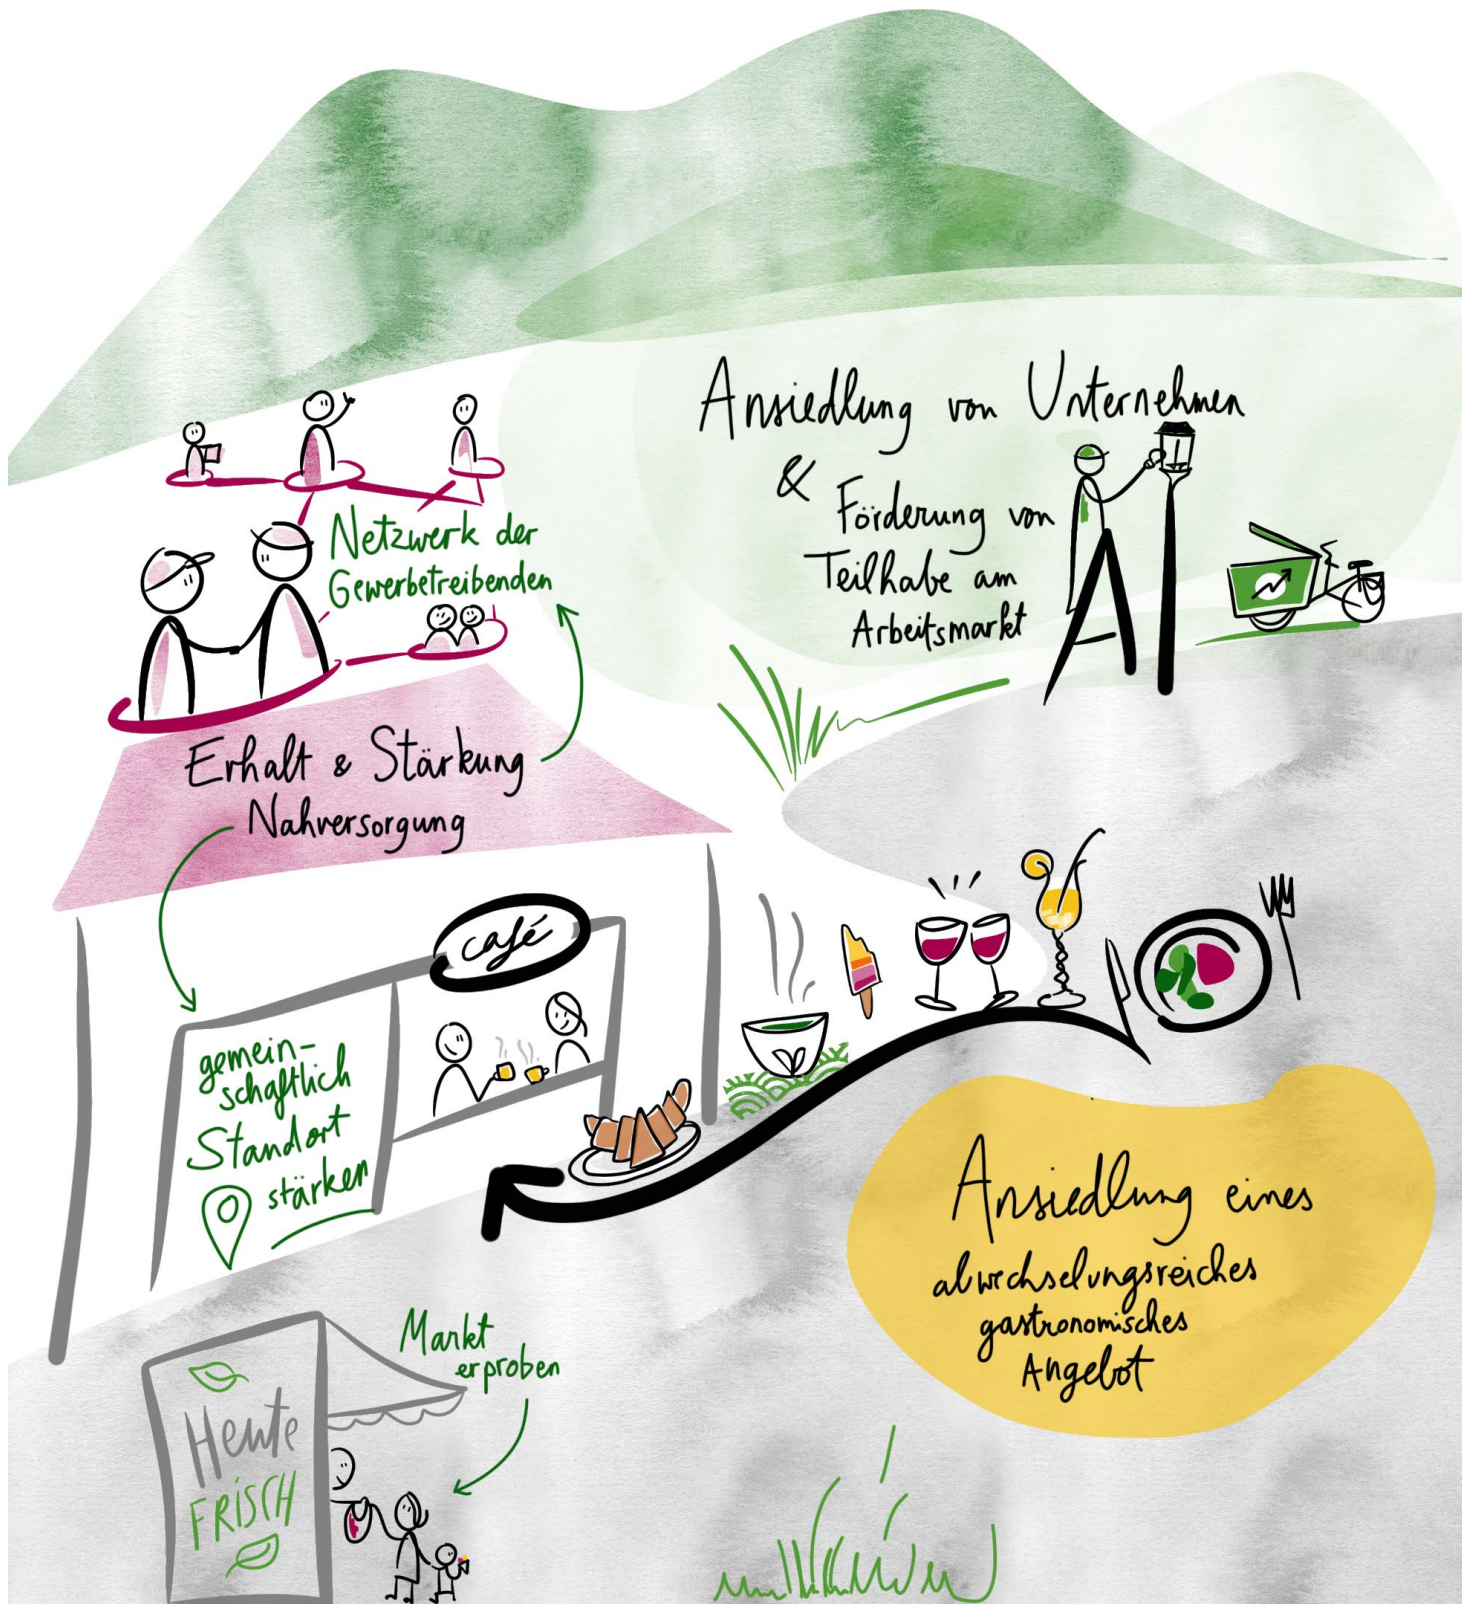 Ansiedlung von Unternehmen
&
Förderung von
Teilhabe am
Arbeitsmarkt
Netzwerk der
Gewerbetreibenden
Erhalt & Stärkung
Nahversorgung
café
gemein-
schaftlich
Standort
stärken
Ansiedlung eines
abwechselungsreiches
gastronomisches
Angebot
Markt
erproben
Heute
FRISCH